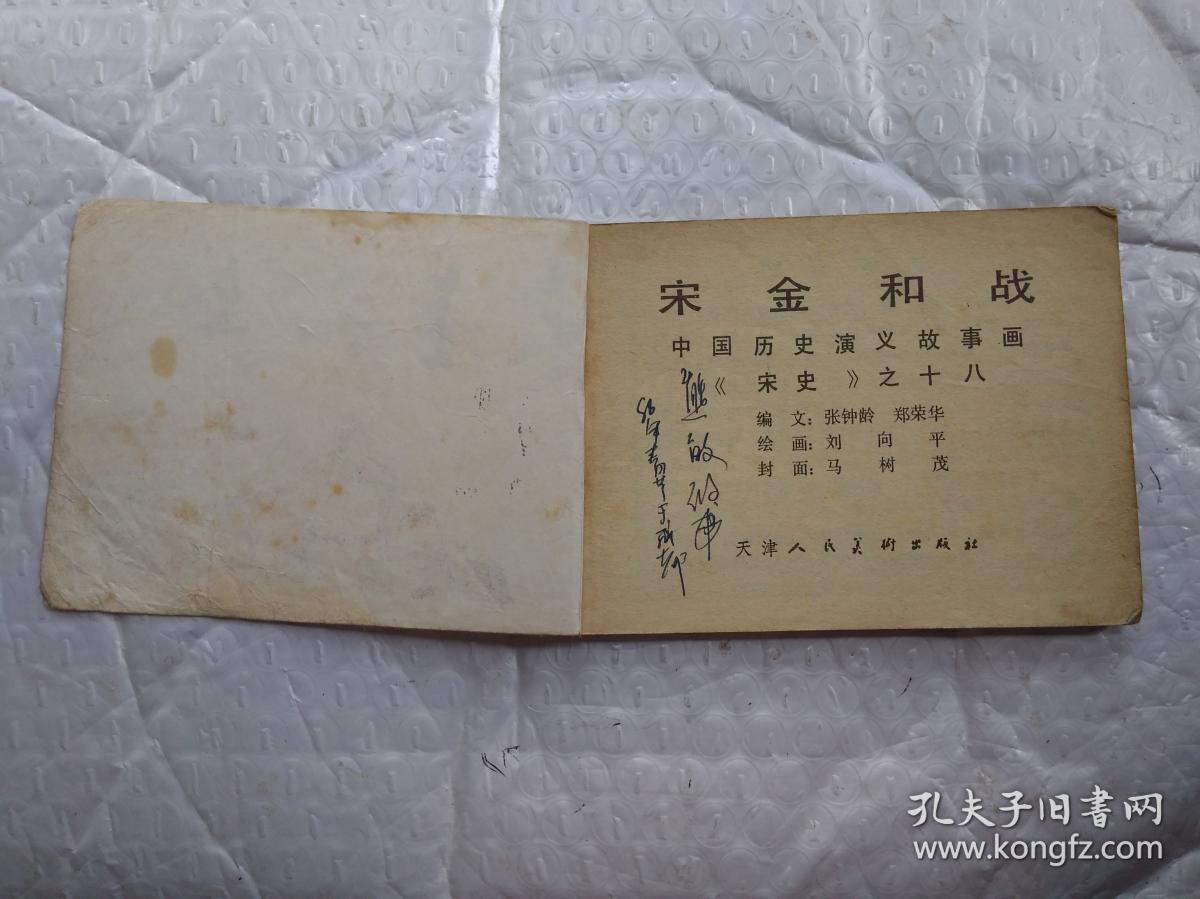 宋金和战
中国历史演义故事画
《宋史》之十八
编 文：张钟龄 郑荣华
绘 画：刘向平
封 面：马树茂
天津人民美術出版社
熊敏
于成都
孔夫子旧书网
www.kongfz.com